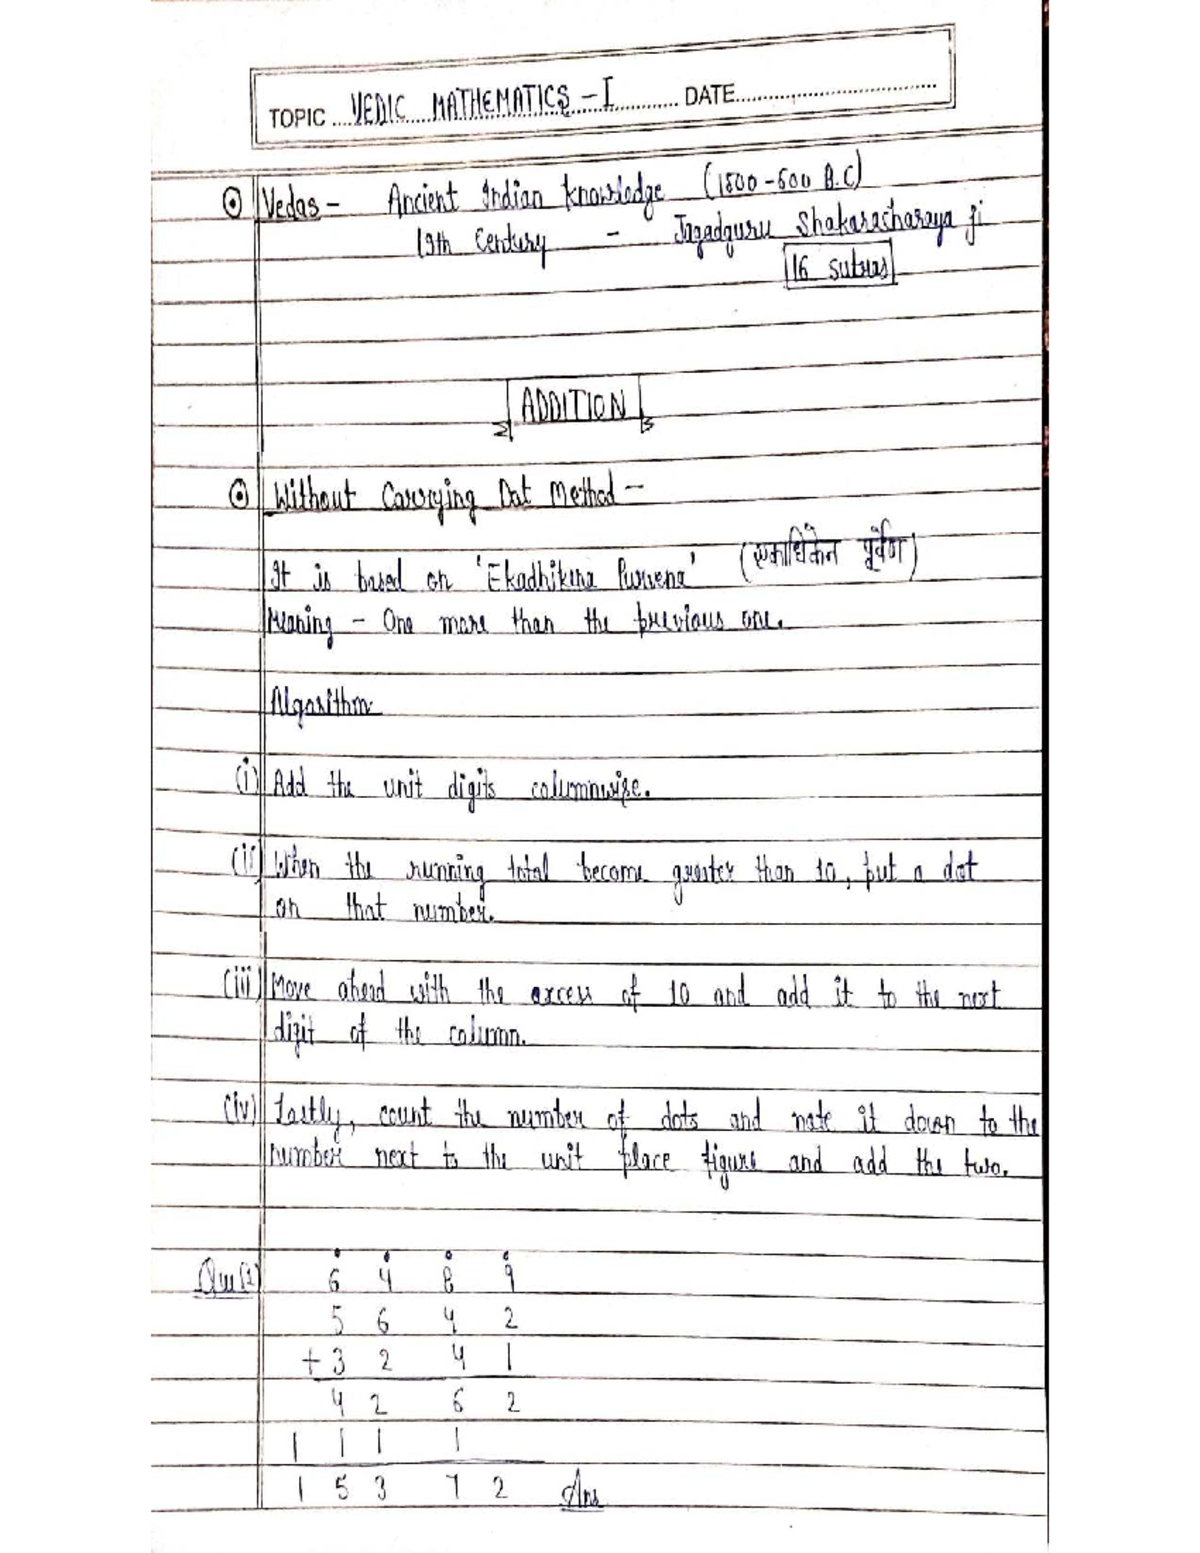 TOPIC VEDIC MATHEMATICS - I DATE
Vedas - Ancient Indian Knowledge (1500-600 B.C)
19th Century - Jagadguru Shakaracharaya ji
16 sutras
ADDITION
Without Carrying Dot Method -
It is based on 'Ekadhikena Purvena' (एकाधिकेन पूर्वेण)
Meaning - One more than the previous one.
Algorithm
(i) Add the unit digits columnwise.
(ii) When the running total become greater than 10, put a dot
on that number.
(iii) Move ahead with the excess of 10 and add it to the next
digit of the column.
(iv) Lastly, count the number of dots and note it down to the
number next to the unit place figure and add the two.
Que(1) 6 4 8 9
5 6 4 2
+ 3 2 4 1
4 2 6 2
1 1 1 1
1 5 3 7 2 Ans